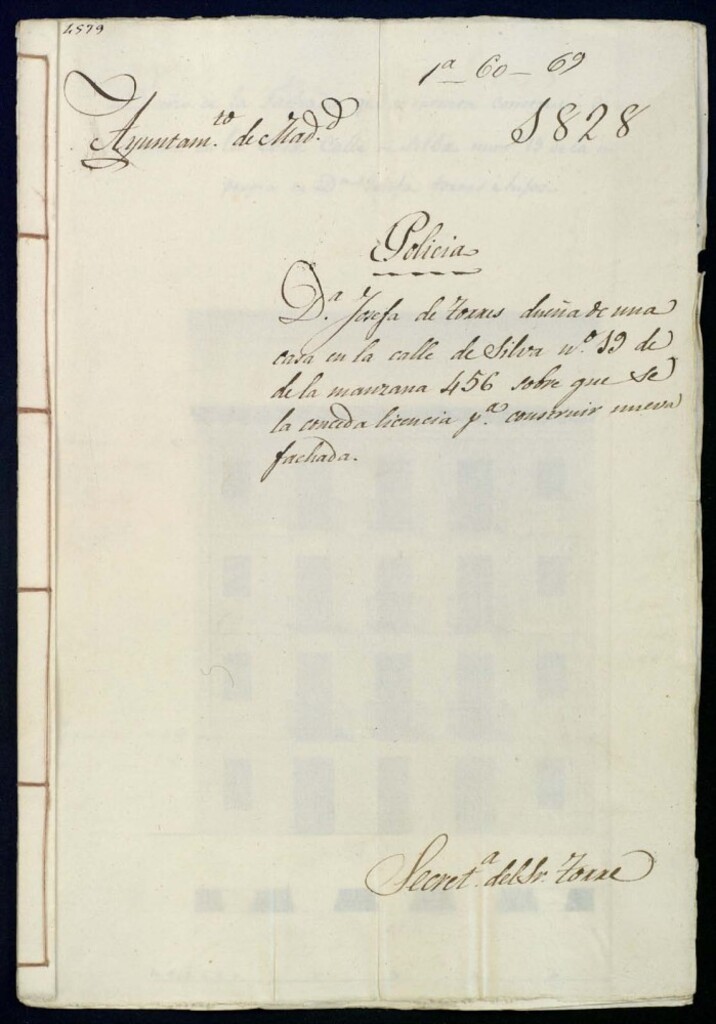 1579
1ª 60 - 69
Ayuntam.to de Mad.d
1828
Policia
D.ª Josefa de Torres dueña de una
casa en la calle de Silva nº. 19 de
de la manzana 456 sobre que se
la conceda licencia p.ª construir nueva
fachada.
Secret.ª del Sr. Torre